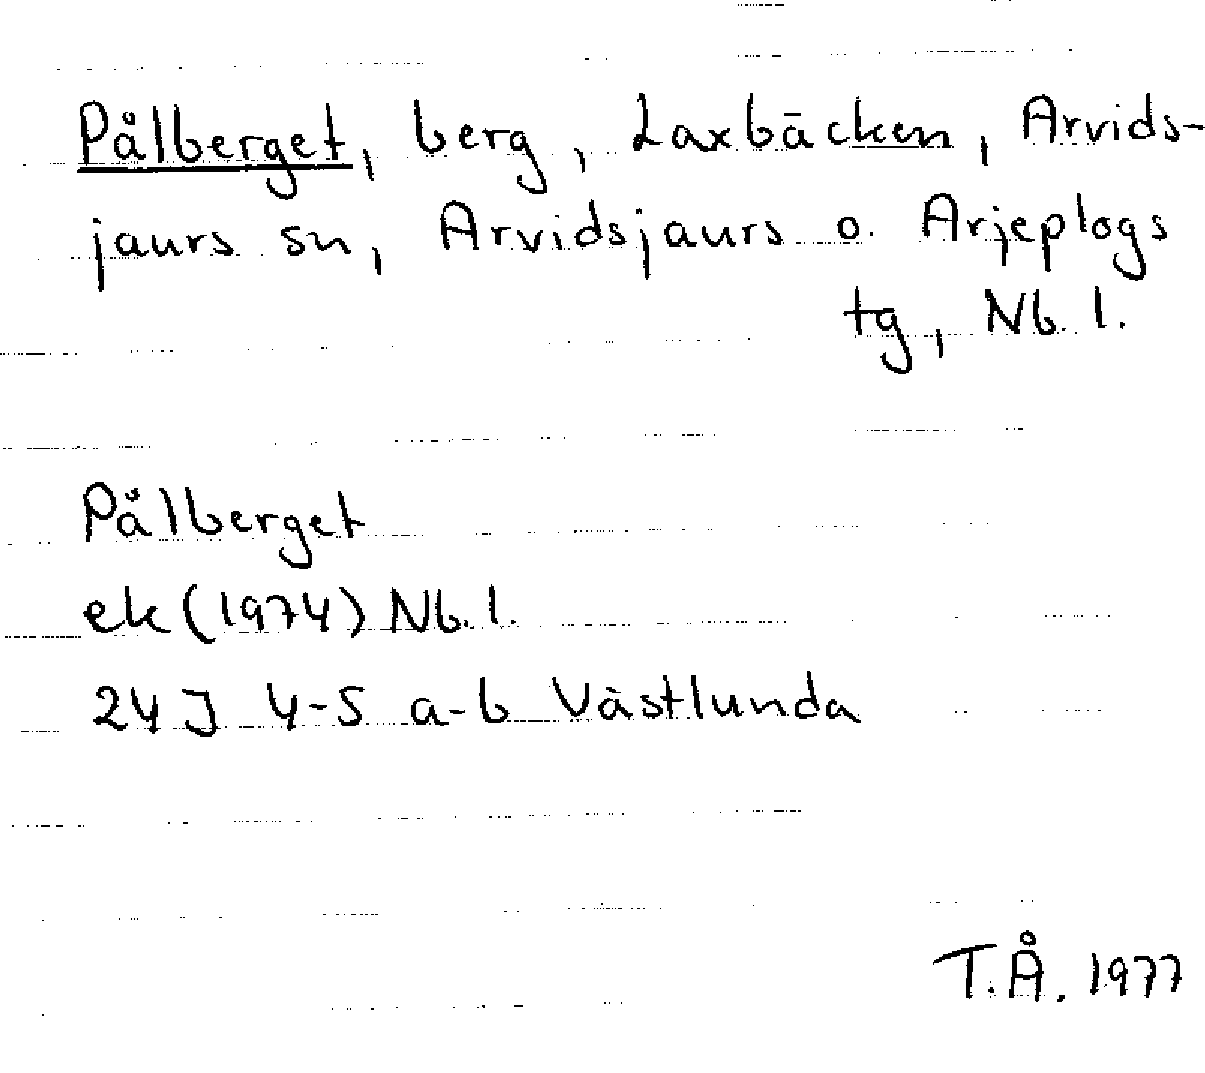 Pålberget, berg, Laxbäcken, Arvids-
jaurs sn, Arvidsjaurs o. Arjeplogs
tg, Nb. l.
Pålberget
ek (1974) Nb. l.
24 J 4-5 a-b Västlunda
T.Å. 1977